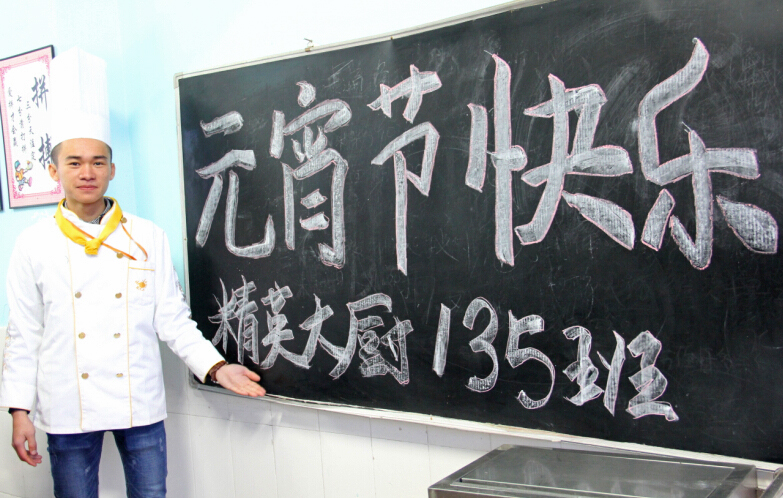 元宵节快乐
精英大厨135班
拼搏